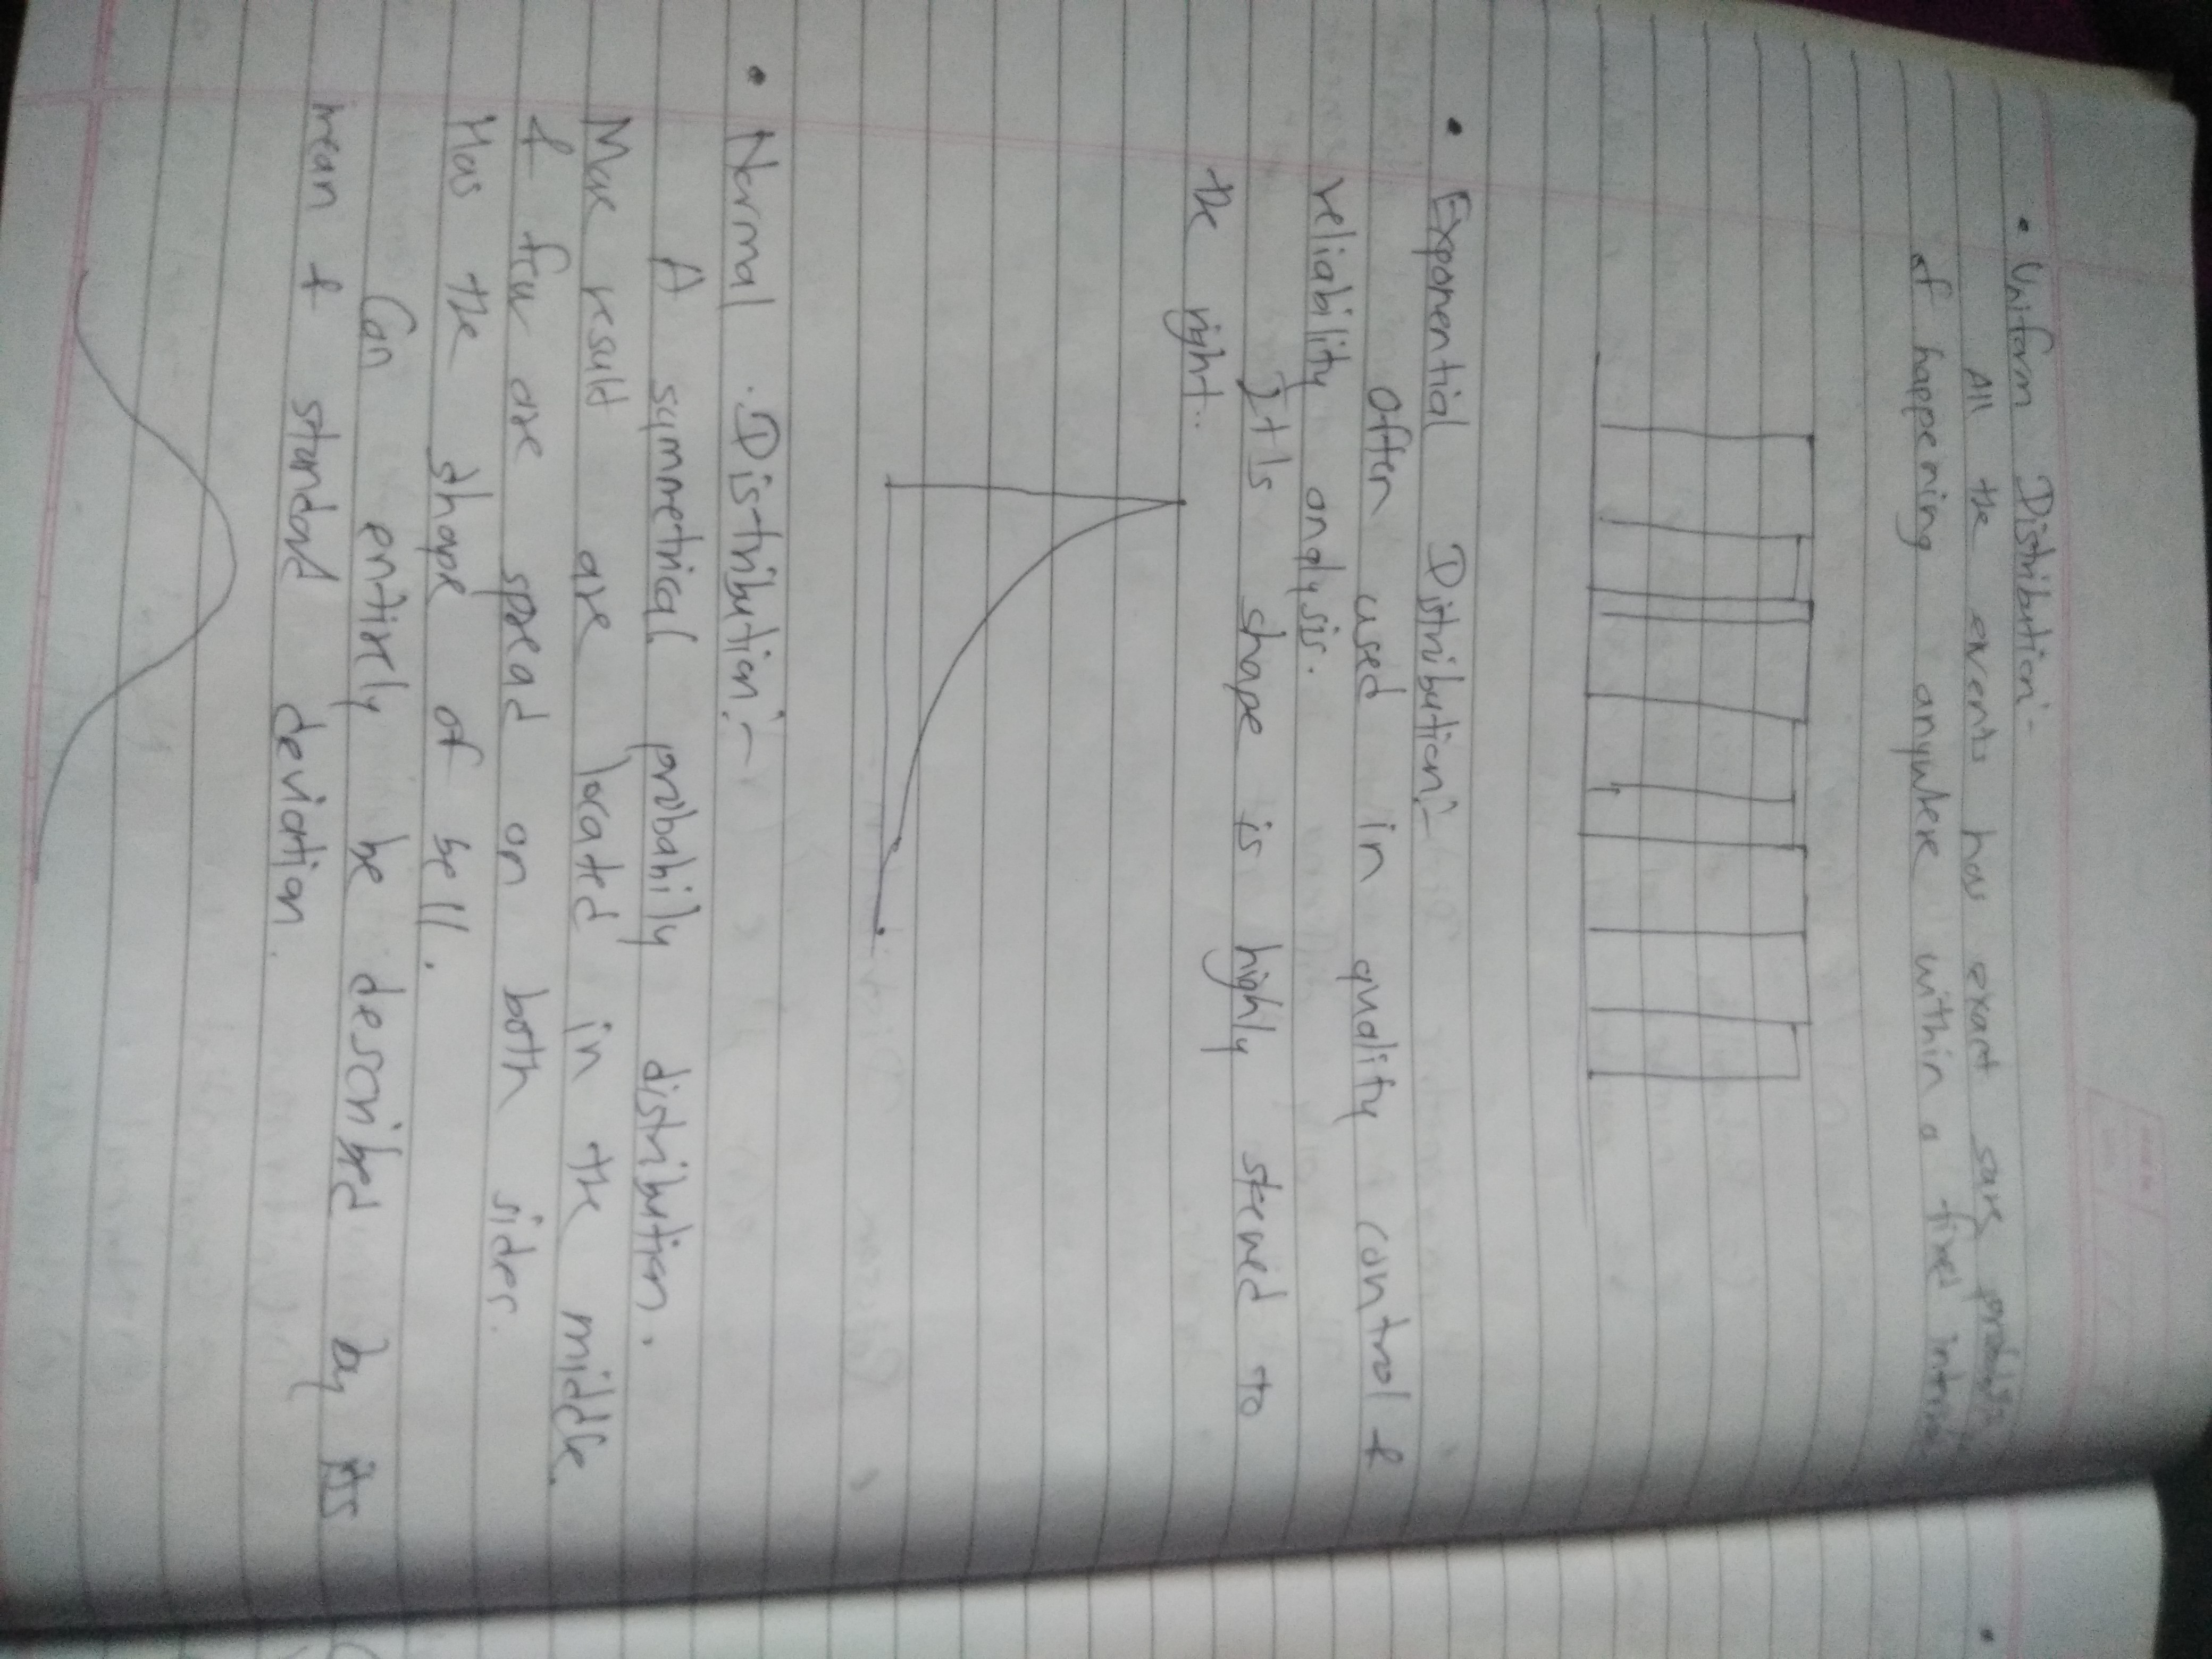 • Uniform Distribution:-
All the events has exact same
of happening anywhere within a fixed
• Exponential Distribution:-
Often used in quality control &
reliability analysis.
It Is shape is highly skewed to
the right..
• Normal Distribution:-
A symmetrical probabily distribution.
More result are located in the middle
& few are spread on both sides.
Has the shape of bell.
Can entirely be described by its
mean & standard deviation.